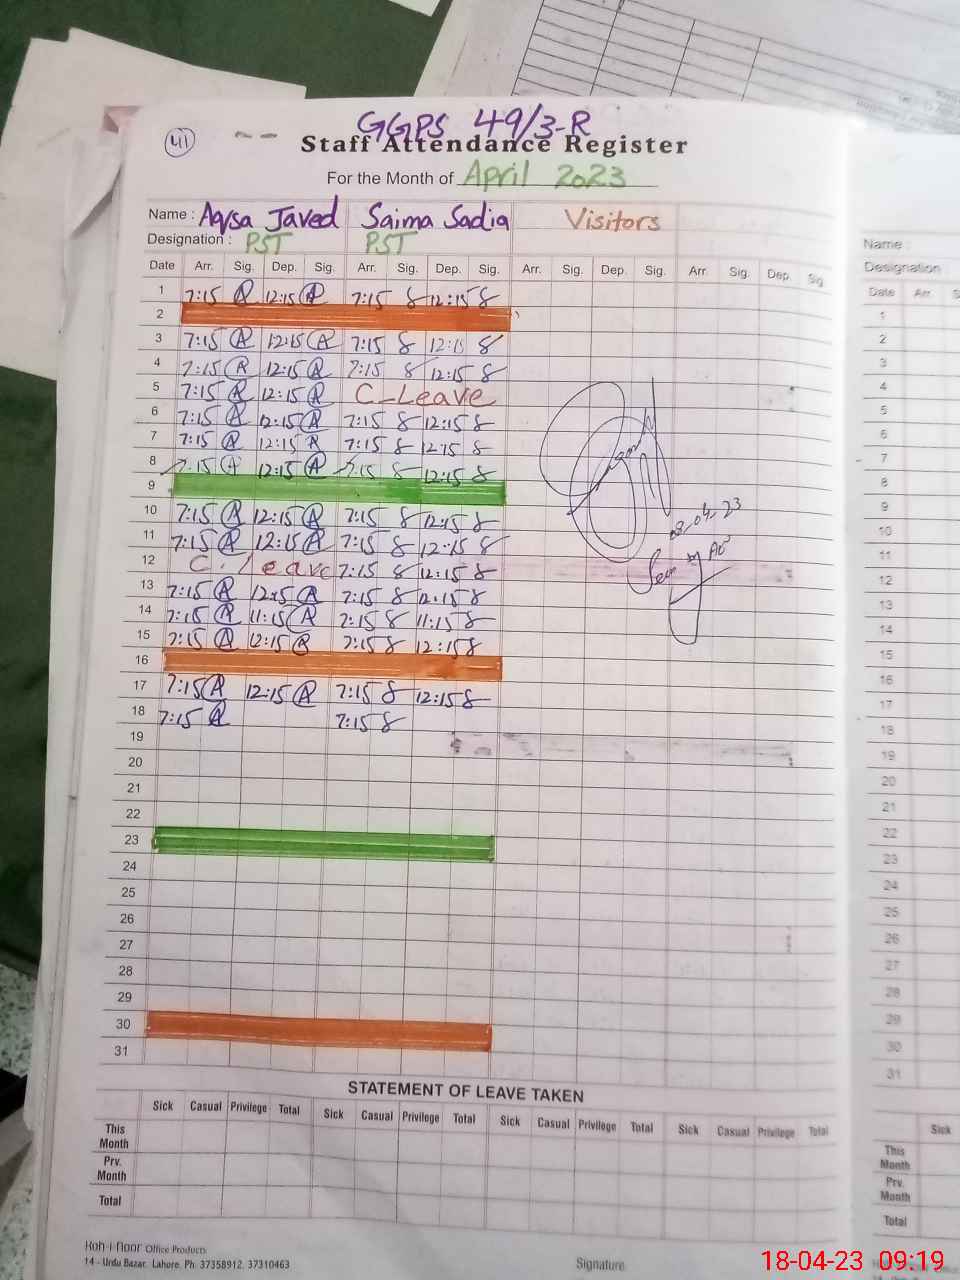 41
GGPS 49/3-R
Staff Attendance Register
For the Month of April 2023
Name : Aqsa Javed Saima Sadia Visitors
Designation : PST PST
Date Arr. Sig. Dep. Sig. Arr. Sig. Dep. Sig. Arr. Sig. Dep. Sig. Arr. Sig. Dep. Sig
1 7:15 A 12:15 A 7:15 S 12:15 S
2
3 7:15 A 12:15 A 7:15 S 12:15 S
4 7:15 A 12:15 A 7:15 S 12:15 S
5 7:15 A 12:15 A C-Leave
6 7:15 A 12:15 A 7:15 S 12:15 S
7 7:15 A 12:15 A 7:15 S 12:15 S
8 7:15 A 12:15 A 7:15 S 12:15 S
9
10 7:15 A 12:15 A 7:15 S 12:15 S
11 7:15 A 12:15 A 7:15 S 12:15 S
12 C.leave 7:15 S 12:15 S
13 7:15 A 12:15 A 7:15 S 12:15 S
14 7:15 A 11:15 A 7:15 S 11:15 S
15 7:15 A 12:15 A 7:15 S 12:15 S
16
17 7:15 A 12:15 A 7:15 S 12:15 S
18 7:15 A 7:15 S
19
20
21
22
23
24
25
26
27
28
29
30
31
08-04-23
Seen by
STATEMENT OF LEAVE TAKEN
Sick Casual Privilege Total Sick Casual Privilege Total Sick Casual Privilege Total Sick Casual Privilege Total
This Month
Prv. Month
Total
Koh-i-Noor Office Products
14 - Urdu Bazar, Lahore. Ph. 37358912, 37310463
Signature
Name :
Designation
Date Arr. S
1
2
3
4
5
6
7
8
9
10
11
12
13
14
15
16
17
18
19
20
21
22
23
24
25
26
27
28
29
30
31
Sick
This Month
Prv. Month
Total
18-04-23 09:19